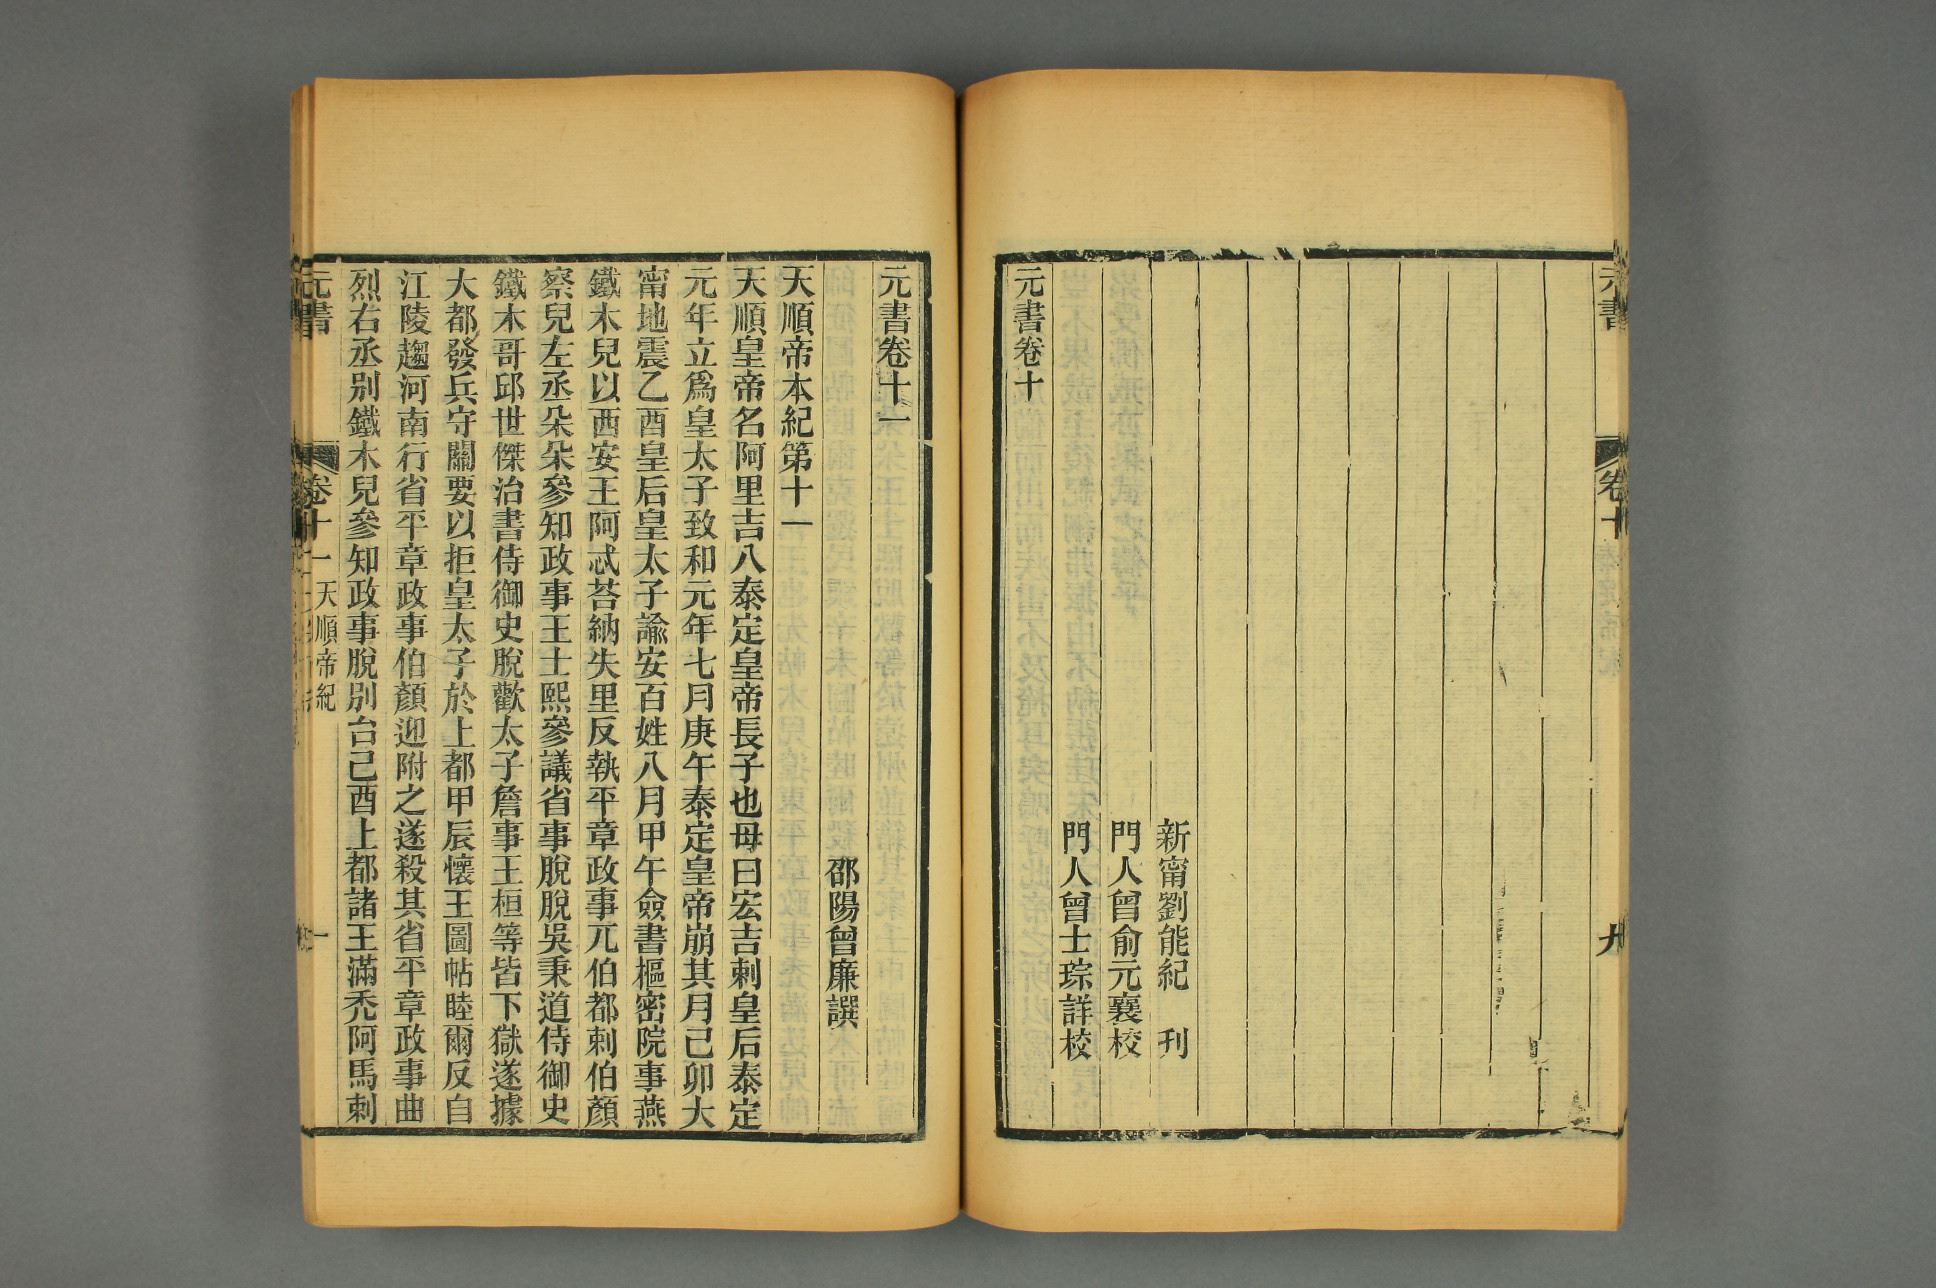 元書
卷十
九
新甯劉能紀　刊
門人曾俞元襄校
門人曾士琮詳校
元書卷十
元書卷十一
邵陽曾廉譔
天順帝本紀第十一
天順皇帝名阿里吉八泰定皇帝長子也母曰宏吉剌皇后泰定
元年立爲皇太子致和元年七月庚午泰定皇帝崩其月己卯大
甯地震乙酉皇后皇太子諭安百姓八月甲午僉書樞密院事燕
鐵木兒以西安王阿忒荅納失里反執平章政事兀伯都剌伯顏
察兒左丞朵朵參知政事王士熙參議省事脫脫吳秉道侍御史
鐵木哥邱世傑治書侍御史脫歡太子詹事王桓等皆下獄遂據
大都發兵守關要以拒皇太子於上都甲辰懷王圖帖睦爾反自
江陵趨河南行省平章政事伯顏迎附之遂殺其省平章政事曲
烈右丞別鐵木兒參知政事脫別台己酉上都諸王滿禿阿馬剌
元書
卷十一　天順帝紀
一